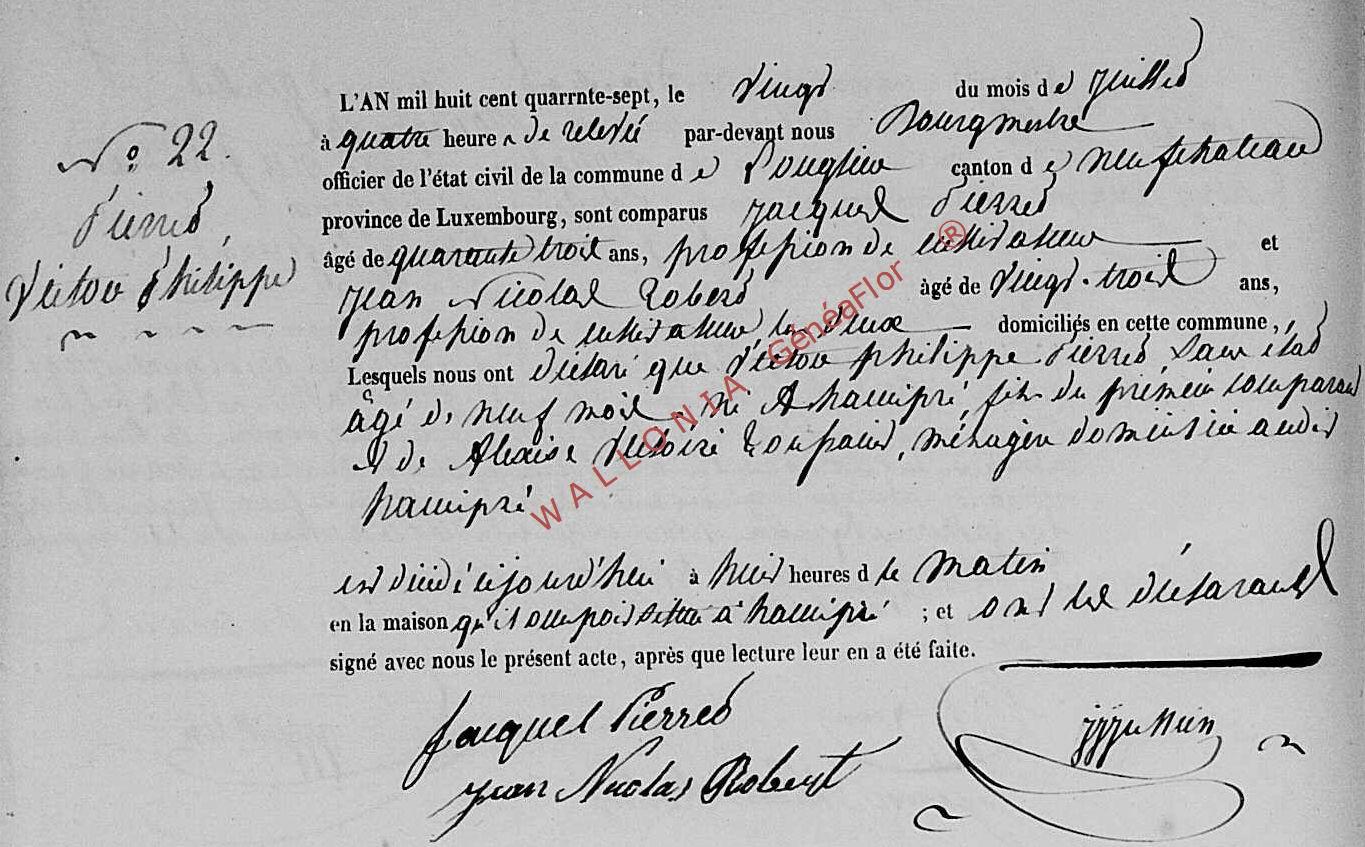 N° 22.
Pierret,
Victor Philippe
L'AN mil huit cent quarrnte-sept, le vingt du mois de juillet
à quatre heures de relevé par-devant nous Bourgmestre
officier de l'état civil de la commune de Longlier canton de neufchateau
province de Luxembourg, sont comparus Jacques Pierret
âgé de quarante trois ans, profession de cultivateur et
Jean Nicolas Robert âgé de vingt-trois ans,
profession de cultivateur, les deux domiciliés en cette commune,
Lesquels nous ont déclaré que Victor philippe Pierret, sans état
agé de neuf mois, né à hamipré, fils du prémier comparant
et de Victoire ménagère domiciliée audit
hamipré
est décédé cejourd'hui à huit heures du matin
en la maison qu'il occupoit située à hamipré ; et ont les déclarants
signé avec nous le présent acte, après que lecture leur en a été faite.
Jacques Pierret
Jean Nicolas Robert
WALLONIA GénéaFlor ®